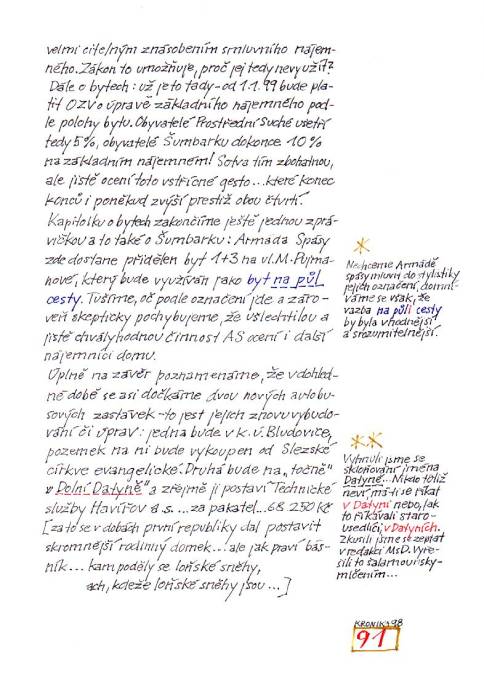 velmi citelným znásobením smluvního nájem-
ného. Zákon to umožňuje, proč jej tedy nevyužít?
Dále o bytech: už je to tady - od 1.1.99 bude pla-
tit OZV o úpravě základního nájemného pod-
le polohy bytu. Obyvatelé Prostřední Suché ušetří
tedy 5%, obyvatelé Šumbarku dokonce 10%
na základním nájemném! Sotva tím zbohatnou,
ale jistě ocení toto vstřícné gesto... které konec
konců i poněkud zvýší prestiž obou čtvrtí.
Kapitolku o bytech zakončíme ještě jednou zprá-
vičkou a to také o Šumbarku: Armáda Spásy
zde dostane přidělen byt 1+3 na ul. M. Pujma-
nové, který bude využíván jako byt na půl
cesty. Tušíme, oč podle označení jde a záro-
veň skepticky pochybujeme, že ušlechtilou a
jistě chvályhodnou činnost AS ocení i další
nájemníci domu.
Úplně na závěr poznamenáme, že v dohled-
né době se asi dočkáme dvou nových autobu-
sových zastávek - to jest jejich znovuvybudo-
vání či úprav: jedna bude v k.ú. Bludovice,
pozemek na ni bude vykoupen od Slezské
církve evangelické. Druhá bude na „točně"
v Dolní Datyně" a zřejmě ji postaví Technické
služby Havířov a.s. ... za pakatel... 68 250 Kč
[za to se v dobách první republiky dal postavit
skromnější rodinný domek... ale jak praví bás-
ník... kam poděly se loňské sněhy,
ach, kdeže loňské sněhy jsou ...]
*
Nechceme Armádě
spásy mluvit do stylistiky
jejich označení, domní-
váme se však, že
vazba na půli cesty
by byla vhodnější
a srozumitelnější.
**
Vyhnuli jsme se
skloňování jména
Datyně... Nikdo totiž
neví, má-li se říkat
v Datyni nebo, jak
to říkávali staro-
usedlíci, v Datyních.
Zkusili jsme se zeptat
v redakci MsD. Vyře-
šili to šalamounsky -
mlčením...
KRONIKA 98
91